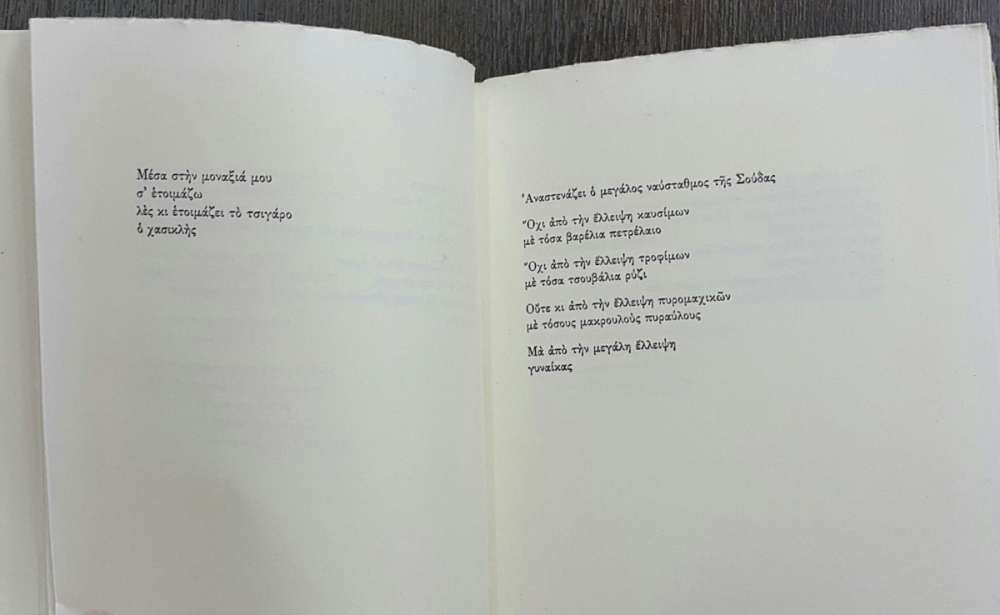 Μέσα στὴν μοναξιά μου
σ' ἑτοιμάζω
λὲς κι ἑτοιμάζει τὸ τσιγάρο
ὁ χασικλὴς
Ἀναστενάζει ὁ μεγάλος ναύσταθμος τῆς Σούδας
Ὄχι ἀπὸ τὴν ἔλλειψη καυσίμων
μὲ τόσα βαρέλια πετρέλαιο
Ὄχι ἀπὸ τὴν ἔλλειψη τροφίμων
μὲ τόσα τσουβάλια ρύζι
Οὔτε κι ἀπὸ τὴν ἔλλειψη πυρομαχικῶν
μὲ τόσους μακρουλοὺς πυραύλους
Μὰ ἀπὸ τὴν μεγάλη ἔλλειψη
γυναίκας